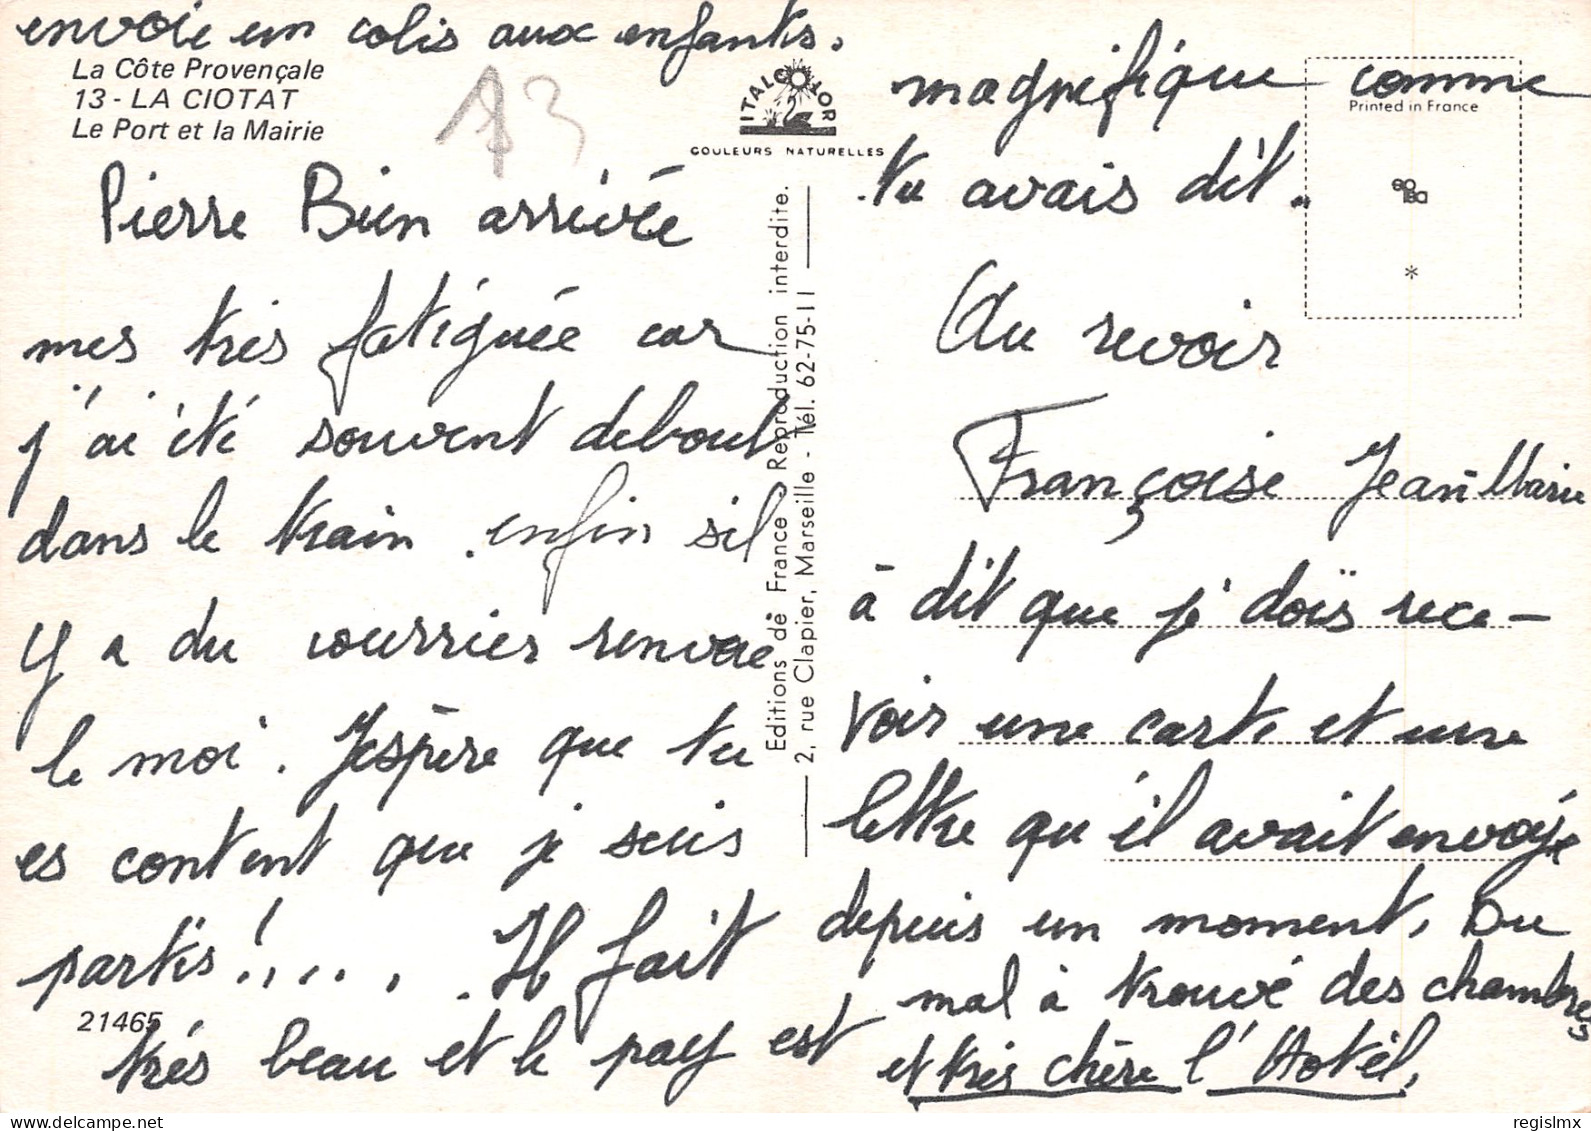 envoie un colis aux enfants.
La Côte Provençale
13 - LA CIOTAT
Le Port et la Mairie
13
Pierre Bien arrivée
mes très fatiguée car
j'ai été souvent debout
dans le train . enfin sil
y a du courrier renvoie
le moi. J'espère que tu
es content que je suis
partis !.... Il fait
21465
très beau et le pay est
ITALCOLOR
COULEURS NATURELLES
Editions de France Reproduction interdite.
2, rue Clapier, Marseille - Tél. 62-75-11
magnifique comme
Printed in France
tu avais dit..
*
Au revoir
Françoise Jean-Marie
à dit que je dois rece-
voir une carte et une
lettre qu'il avait envoyé
depuis un moment. Du
mal à trouvé des chambres
et très chère l'Hotêl.
regislmx